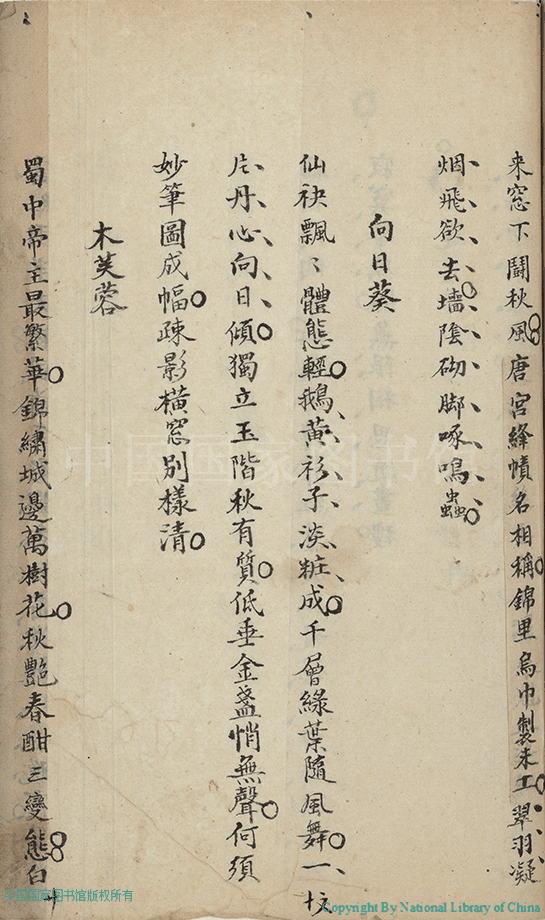 来窓下鬪秋風唐宮絳幘名相稱錦里烏巾製未工翠羽凝
烟飛欲去墻陰砌脚啄鳴蟲
向日葵
仙袂飄〻體態輕鵝黃衫子淡粧成千層綠葉隨風舞一
片丹心向日傾獨立玉階秋有質低垂金盞悄無聲何須
妙筆圖成幅疎影橫窓別樣清
木芙蓉
蜀中帝主最繁華錦繡城邊萬樹花秋艷春酣三變態白
中国国家图书馆
中国国家图书馆版权所有
Copyright By National Library of China